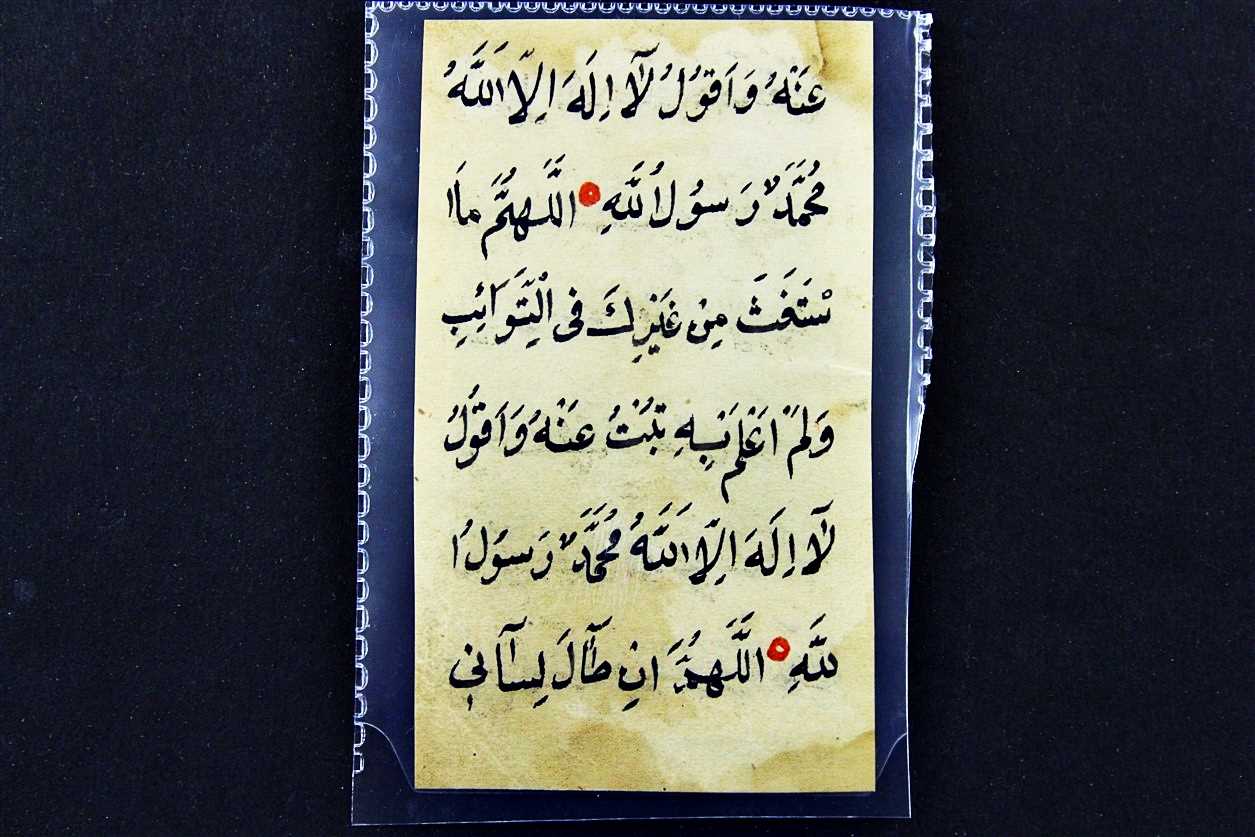 عَنْهُ وَاَقوُلُ لآَ اِلَهَ اِلاَّ اللَّهُ
مُحَمَّدٌ رَسوُلُ اللَّهِ اللَّهُمَّ مَا ا
سْتَغَثَ مِنْ غَيْرِكَ فى الْنَّوَائِبِ
وَلَمْ اَعْلَمْ بِهِ تُبْتُ عَنْهُ وَاَقوُلُ
لآَ اِلَهَ اِلاَّ اللَّهُ مُحَمَّدٌ رَسوُلُ ا
للَّهِ اللَّهُمَّ اِنِ طَالَ لِسَانِى